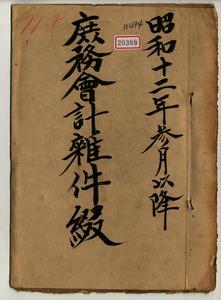 昭和十二年参月以降
庶務會計雜件綴
11494
20388